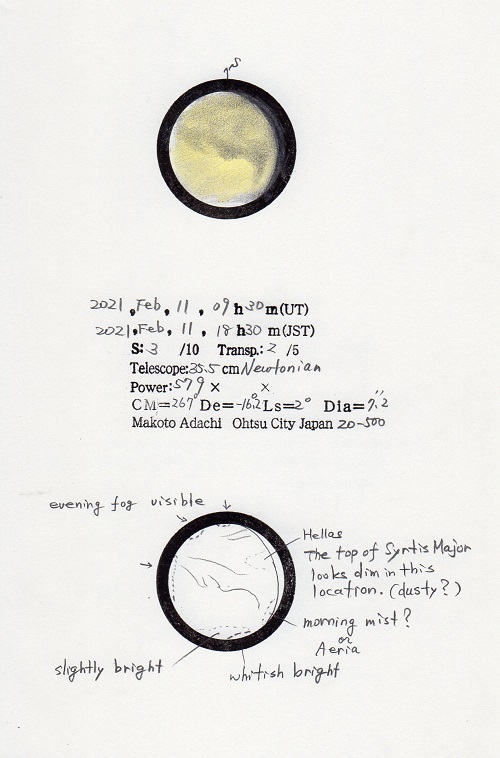 S
2021, Feb, 11, 09 h 30 m (UT)
2021, Feb, 11, 18 h 30 m (JST)
S: 3 /10 Transp.: 2 /5
Telescope: 35.5 cm Newtonian
Power: 579 × ×
CM=267° De=-16.2° Ls=2° Dia=7.2"
Makoto Adachi Ohtsu City Japan 20-500
evening fog visible
Hellas
The top of Syrtis Major
looks dim in this
location. (dusty?)
morning mist?
or
Aeria
slightly bright
whitish bright